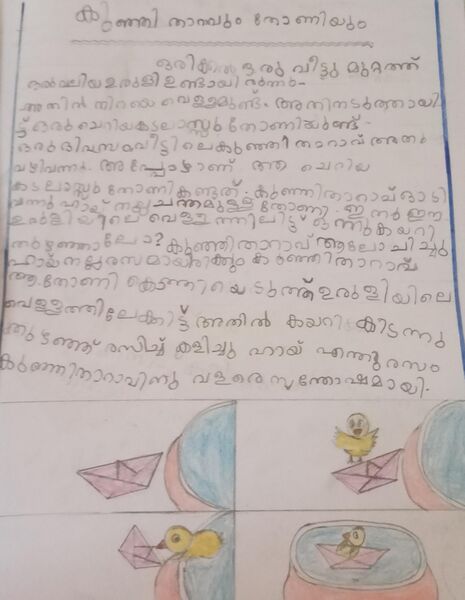 കുഞ്ഞി താറാവും തോണിയും
ഒരിക്കൽ ഒരു വീട്ടു മുറ്റത്ത്
ഒരു വലിയ ഉരുളി ഉണ്ടായിരുന്നു.
അതിൽ നിറയെ വെള്ളമുണ്ട്. അതിനടുത്തായി
ട്ട് ഒരു ചെറിയ കടലാസ്സു തോണിയുണ്ട്.
ഒരു ദിവസം വീട്ടിലെ കുഞ്ഞിതാറാവ് അതു
വഴിവന്നു. അപ്പോഴാണ് ആ ചെറിയ
കടലാസ്സു തോണി കണ്ടത്. കുഞ്ഞിതാറാവ് ഓടി
വന്നു ഹായ് നല്ല ചന്തമുള്ള തോണി. ഇന്നു ഈ
ഉരുളിയിലെ വെള്ളത്തിലിട്ട് ഒന്നു കയറി
തുഴഞ്ഞാലോ? കുഞ്ഞിതാറാവ് ആലോചിച്ചു
ഹായ് നല്ല രസമായിരിക്കും കുഞ്ഞിതാറാവ്
ആ തോണി കൊത്തിയെടുത്ത് ഉരുളിയിലെ
വെള്ളത്തിലേക്കിട്ട് അതിൽ കയറി കിടന്നു
തുഴഞ്ഞ് രസിച്ച് കളിച്ചു ഹായ് എന്തു രസം
കുഞ്ഞിതാറാവിനു വളരെ സന്തോഷമായി.